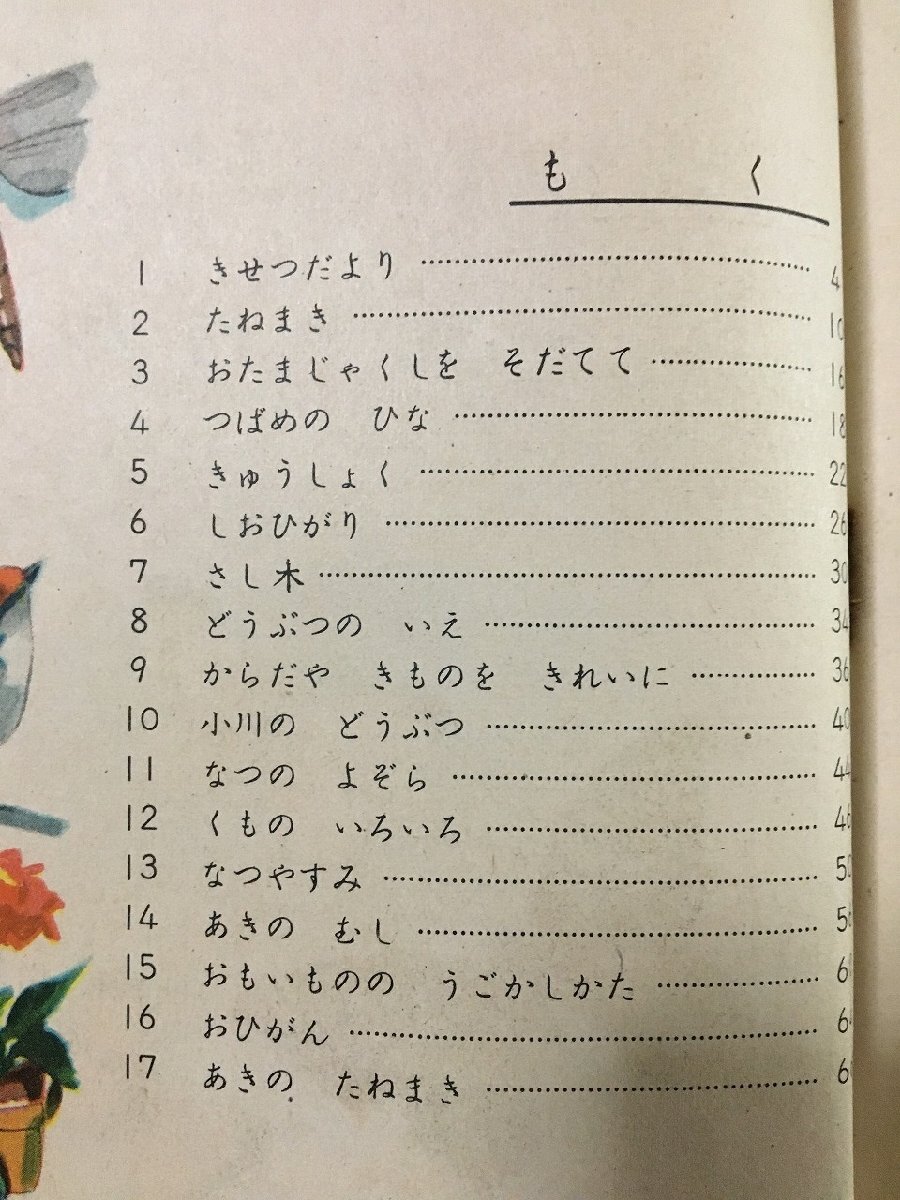 も く
1 きせつだより 4
2 たねまき 10
3 おたまじゃくしを そだてて 16
4 つばめの ひな 18
5 きゅうしょく 22
6 しおひがり 26
7 さし木 30
8 どうぶつの いえ 34
9 からだや きものを きれいに 36
10 小川の どうぶつ 40
11 なつの よぞら 44
12 くもの いろいろ
13 なつやすみ
14 あきの むし
15 おもいものの うごかしかた
16 おひがん
17 あきの たねまき